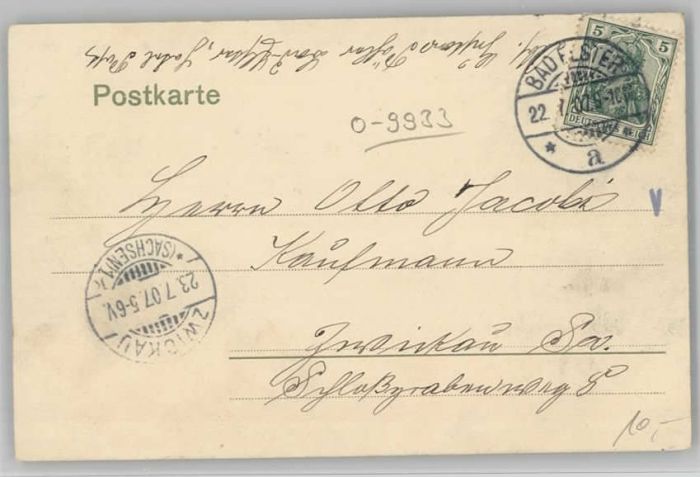 Postkarte
0-9933
5 5
DEUTSCHES REICH
BAD ELSTER
22 7.07.9-10
* a *
Herrn Otto Jacobi
Kaufmann
Zwickau Sa.
Schloßgrabenweg
*(SACHSEN)1.
23.7.07.5-6V.
ZWICKAU
10,-